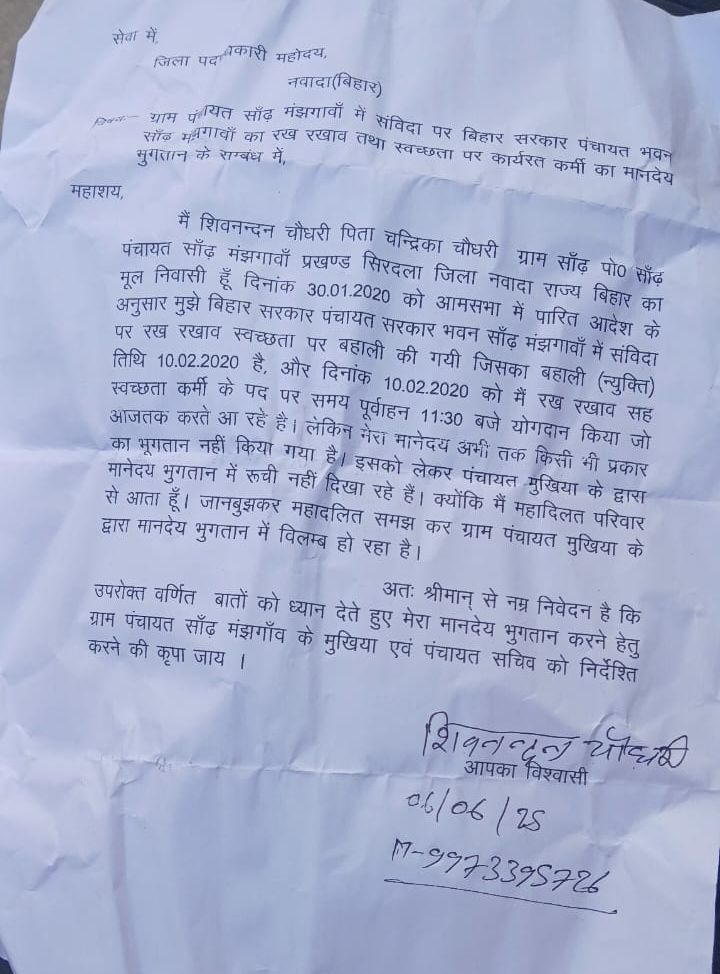 सेवा में,
जिला पदाधिकारी महोदय,
नवादा(बिहार)
विषय:- ग्राम पंचायत साँढ़ मंझगावाँ में संविदा पर बिहार सरकार पंचायत भवन
साँढ़ मंझगावाँ का रख रखाव तथा स्वच्छता पर कार्यरत कर्मी का मानदेय
भुगतान के सम्बंध में,
महाशय,
मैं शिवनन्दन चौधरी पिता चन्द्रिका चौधरी ग्राम साँढ़ पो0 साँढ़
पंचायत साँढ़ मंझगावाँ प्रखण्ड सिरदला जिला नवादा राज्य बिहार का
मूल निवासी हूँ दिनांक 30.01.2020 को आमसभा में पारित आदेश के
अनुसार मुझे बिहार सरकार पंचायत सरकार भवन साँढ़ मंझगावाँ में संविदा
पर रख रखाव स्वच्छता पर बहाली की गयी जिसका बहाली (न्युक्ति)
तिथि 10.02.2020 है, और दिनांक 10.02.2020 को मैं रख रखाव सह
स्वच्छता कर्मी के पद पर समय पूर्वाहन 11:30 बजे योगदान किया जो
आजतक करते आ रहे है। लेकिन मेरा मानेदय अभी तक किसी भी प्रकार
का भूगतान नहीं किया गया है। इसको लेकर पंचायत मुखिया के द्वारा
मानेदय भुगतान में रूची नहीं दिखा रहे हैं। क्योंकि मैं महादिलत परिवार
से आता हूँ। जानबुझकर महादलित समझ कर ग्राम पंचायत मुखिया के
द्वारा मानदेय भुगतान में विलम्ब हो रहा है।
अतः श्रीमान् से नम्र निवेदन है कि
उपरोक्त वर्णित बातों को ध्यान देते हुए मेरा मानदेय भुगतान करने हेतु
ग्राम पंचायत साँढ़ मंझगाँव के मुखिया एवं पंचायत सचिव को निर्देश्ति
करने की कृपा जाय ।
शिवनन्दन चौधरी
आपका विश्वासी
06/06/25
M-9973395726